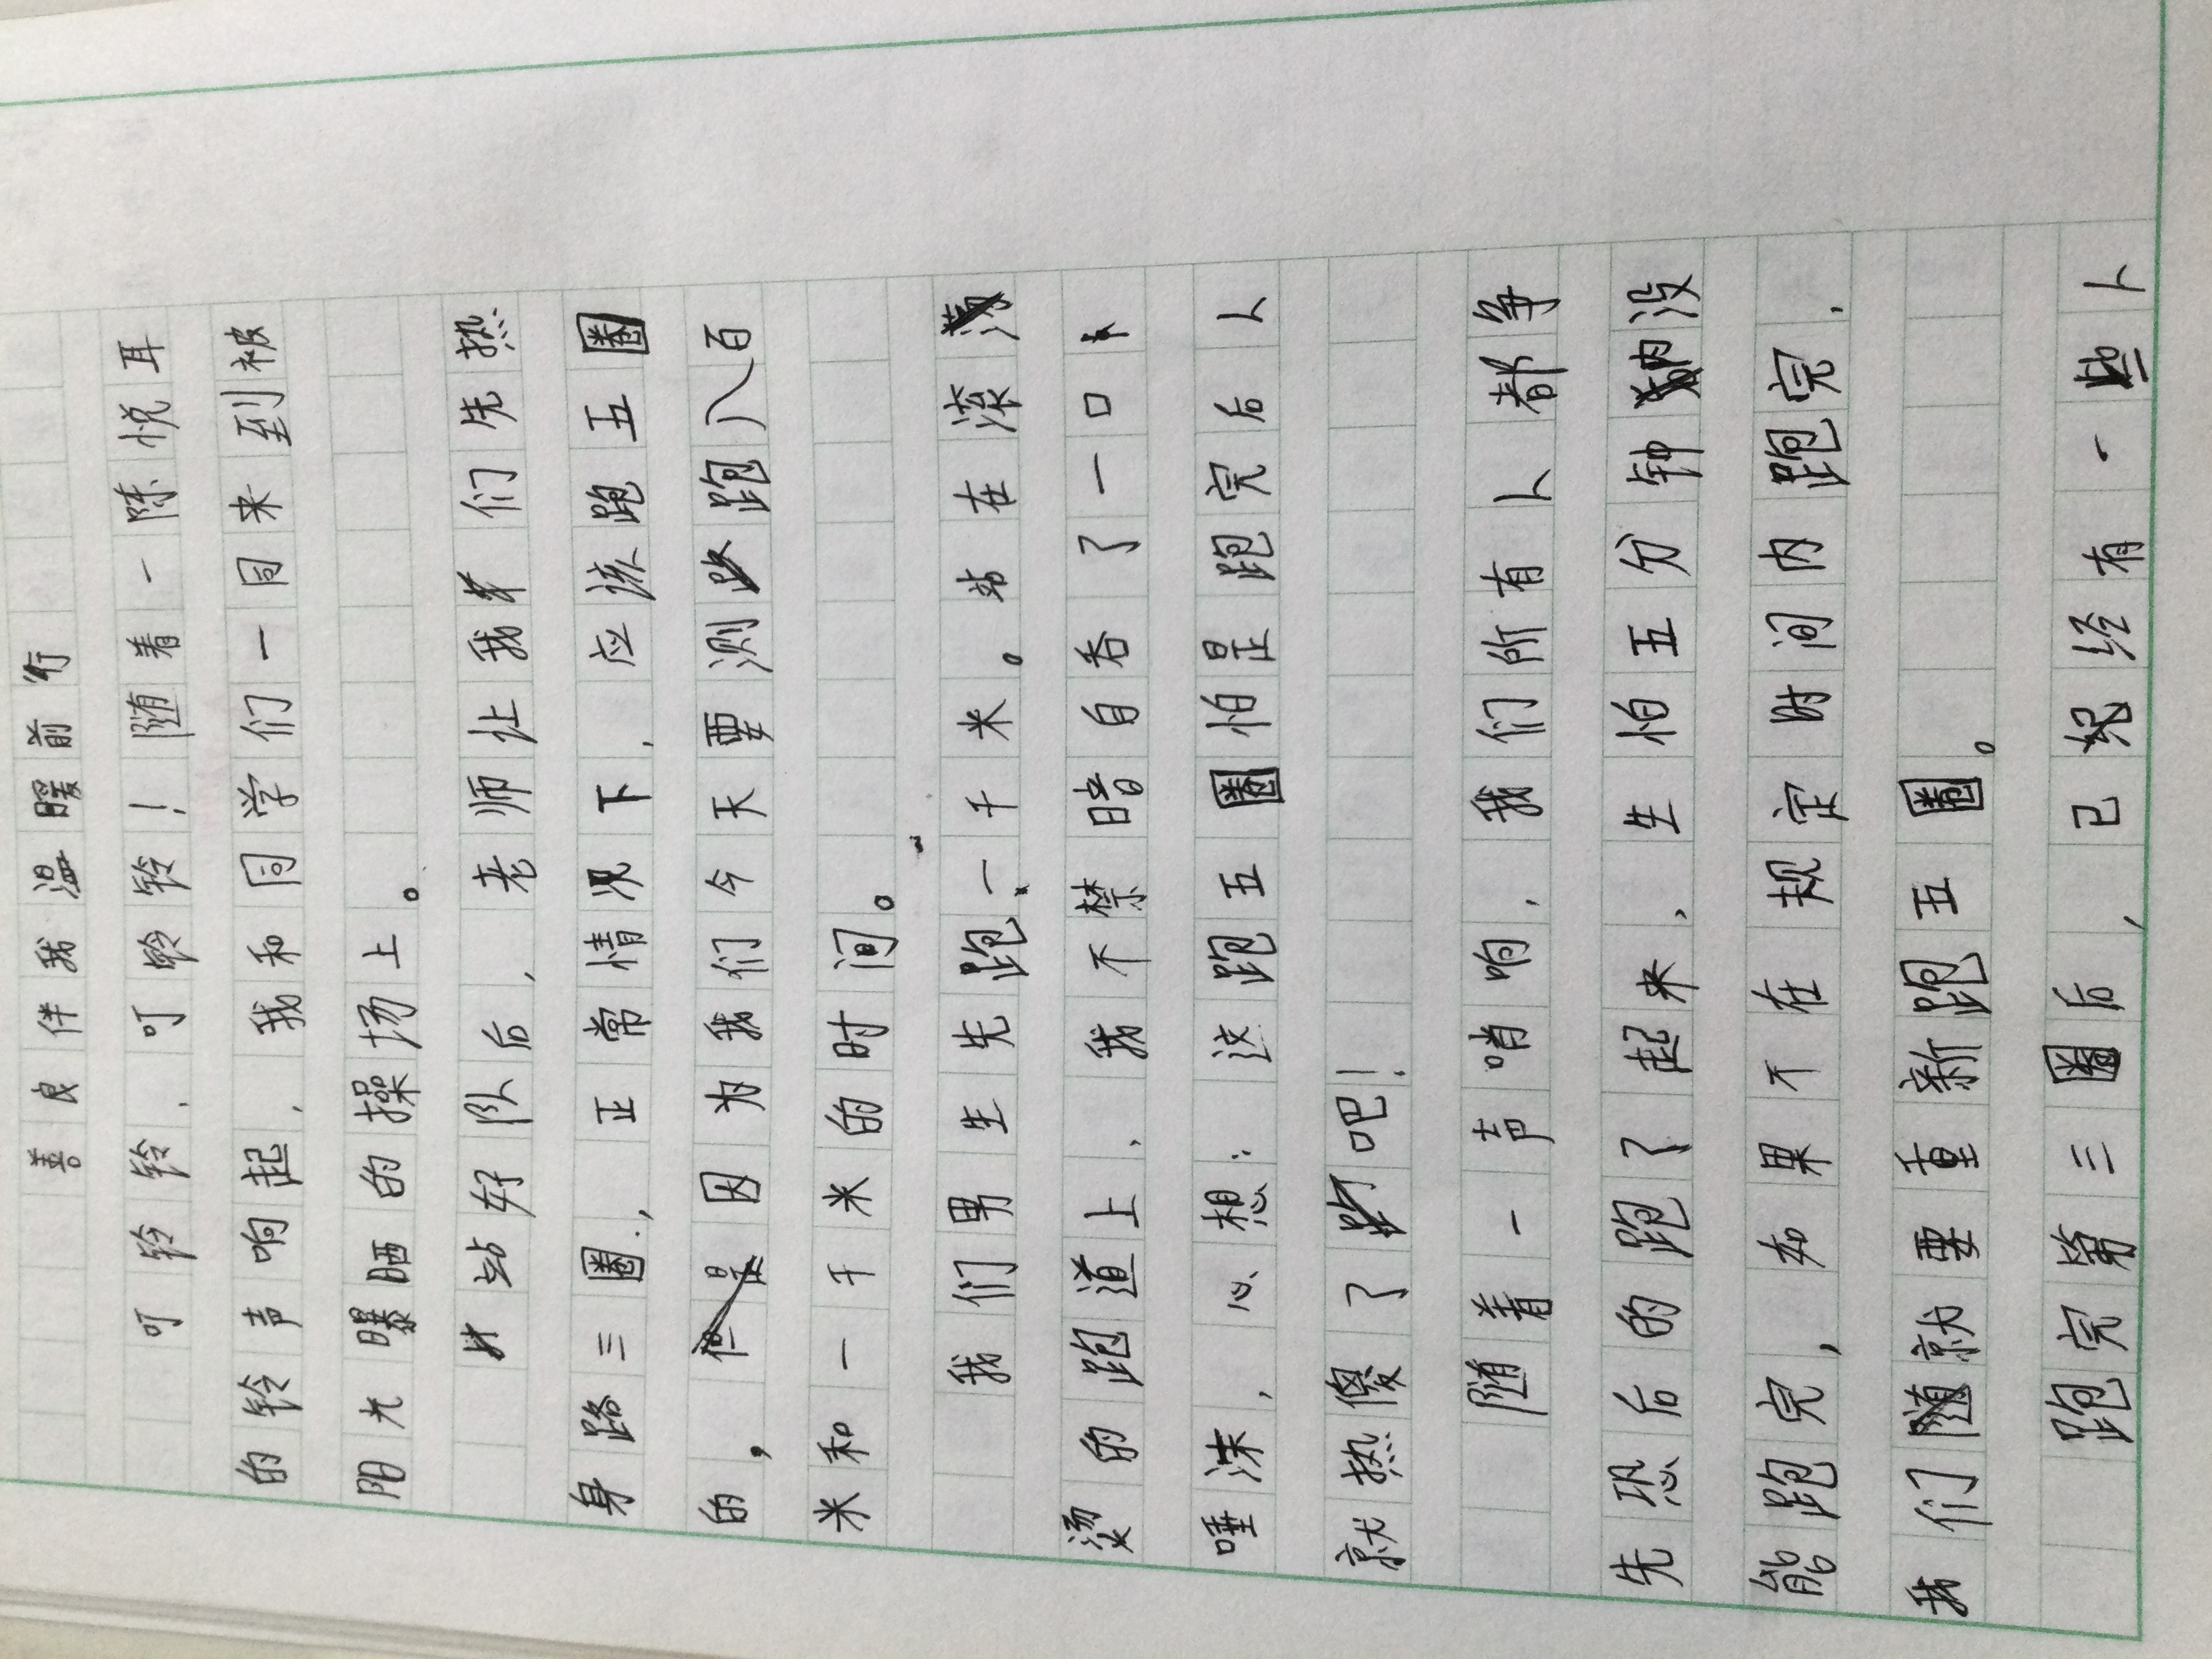 善良伴我温暖前行
叮铃铃，叮铃铃！随着一陈悦耳
的铃声响起，我和同学们一同来到被
阳光曝晒的操场上。
站好队后，老师让我们先热
身路三圈，正常情况下，应该跑五圈
的，因为我们今天要测跑八百
米和一千米的时间。
我们男生先跑一千米。站在滚
烫的跑道上，我不禁暗自吞了一口
唾沫，心想：这跑五圈怕是跑完后人
就热傻了吧！
随着一声哨响，我们所有人都争
先恐后的跑了起来，生怕五分钟没
能跑完，如果不在规定时间内跑完，
我们就要重新跑五圈。
跑完第三圈后，已经有一些人